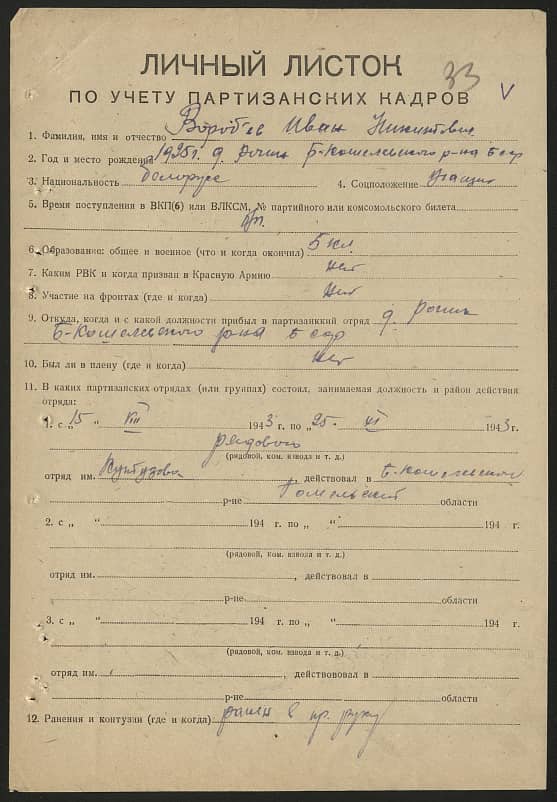 33
ЛИЧНЫЙ ЛИСТОК
ПО УЧЕТУ ПАРТИЗАНСКИХ КАДРОВ V
1. Фамилия, имя и отчество Вороб'ев Иван Никитович
2. Год и место рождения 1925 г. д. Б-Кошелевского р-на бсср
3. Национальность белорус 4. Соцположение учащий
5. Время поступления в ВКП(б) или ВЛКСМ, № партийного или комсомольского билета
6. Образование: общее и военное (что и когда окончил) 5 кл
7. Каким РВК и когда призван в Красную Армию нет
8. Участие на фронтах (где и когда) нет
9. Откуда, когда и с какой должности прибыл в партизанкий отряд д.
Б-Кошелевского р-на бсср
10. Был ли в плену (где и когда) нет
11. В каких партизанских отрядах (или группах) состоял, занимаемая должность и район действия
отряда:
1. с „15 “ VIII 1943 г. по „25. “ XI 1943 г.
рядового
(рядовой, ком. взвода и т. д.)
отряд им. Кутузова, действовал в Б-Кошелевском
р-не Гомельской области
2. с „ “ 194 г. по „ “ 194 г.
(рядовой, ком. взвода и т. д.)
отряд им. , действовал в
р-не области
3. с „ “ 194 г. по „ “ 194 г.
(рядовой, ком. взвода и т. д.)
отряд им. , действововал в
р-не области
12. Ранения и контузии (где и когда) ранен в пр. руку